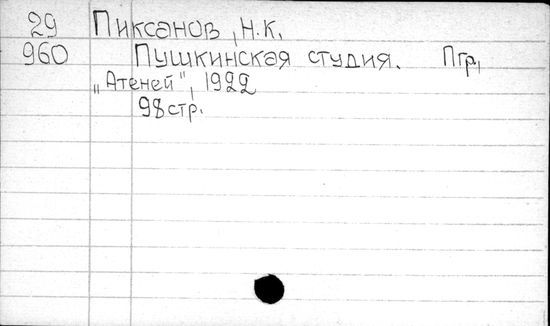 29 Пиксанов, Н.К.
960 Пушкинская студия. Пгр,
„Атеней", 1922
98 стр.